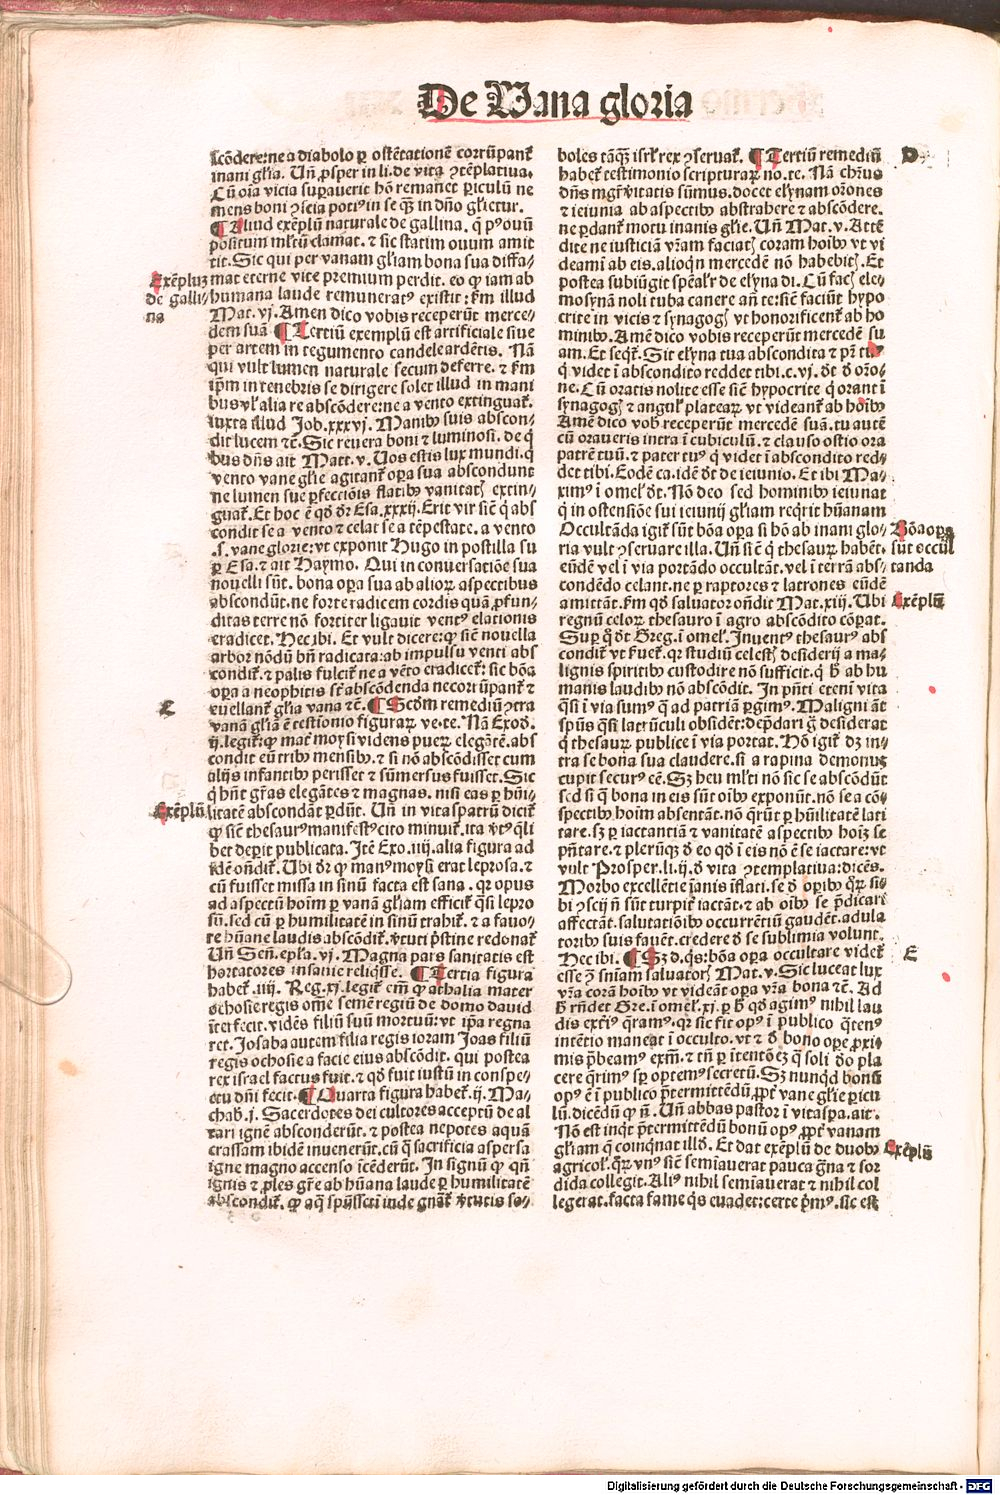 De Uana gloria
scōdere: ne a diabolo ꝑ ostētationē corrūpant᷑
inani gl̄ia. Uñ ꝓsper in li. de vita ꝯtēplatiua.
Cū oīa vicia suꝑauerit hō remanet ꝑiculū ne
mens boni ꝯscia potiꝰ in se q̄ꝫ in dn̄o gl̄ietur.
¶ Aliud exēplū naturale de gallina. q̄ pꝰ ouū
positum ml̄tū clamat. ⁊ sic statim ouum amit
tit. Sic qui per vanam gl̄iam bona sua diffa-
mat eterne vite premium perdit. eo ꝙ iam ab
humana laude remuneratꝰ existit: s̄m illud
Mat. vj. Amen dico vobis receperūt merce-
dem suā ¶ Tertiū exemplū est artificiale siue
per artem in tegumento candele ardētis. Nā
qui vult lumen naturale secum deferre. ⁊ s̄m
ip̄m in tenebris se dirigere solet illud in mani
bus vl̓ alia re abscōdere: ne a vento extinguat᷑.
iuxta illud Job. xxxvj. Manibꝰ suis abscon-
dit lucem ⁊c̄. Sic reuera boni ⁊ luminosi. de q̄
bus dn̄s ait Matt. v. Uos estis lux mundi. q̄
vento vane gl̄ie agitant᷑ oꝑa sua abscondunt
ne lumen sue ꝑfecciōis flatibꝰ vanitatꝭ extin-
guat᷑. Et hoc ē qd̄ dr̄ Esa. xxxij. Erit vir sic̄ q̄ abs
condit se a vento ⁊ celat se a tēpestate. a vento
.s. vane glorie: vt exponit Hugo in postilla su
ꝑ Esa. ⁊ ait Haymo. Qui in conuersatiōe sua
nouelli sūt. bona oꝑa sua ab alioꝝ aspectibus
abscondūt. ne forte radicem cordis quā ꝓfun-
ditas terre nō fortiter ligauit ventꝰ elationis
eradicet. Hec ibi. Et vult dicere: ꝙ sic̄ nouella
arbor nōdū bn̄ radicata: ab impulsu venti abs
condit᷑. ⁊ palis fulcit᷑ ne a vēto eradicet᷑: sic bōa
oꝑa a neophitis st̄ abscōdenda ne corrūpant᷑ ⁊
euellant᷑ gl̄ia vana ⁊c̄. ¶ Scd̄m remediū ꝯtra
vanā gl̄iā ē testionio figuraꝝ ve. te. Nā Exod.
ij. legit᷑: ꝙ mat᷑ moysi videns pueꝝ elegātē. abs
condit eū tribꝰ mensibꝰ. ⁊ si nō abscōdisset cum
alijs infantibꝰ perisset ⁊ sūmersus fuisset. Sic
q̄ hn̄t gr̄as elegātes ⁊ magnas. nisi eas ꝑ hūi-
litatē abscondāt ꝑdūt. Uñ in vitaspatrū dicit᷑
ꝙ sic̄ thesaurꝰ manifestꝰ cito minuit᷑. ita v̓tꝰ q̄li
bet deꝑit publicata. Itē Exo. iiij. alia figura ad
idē on̄dit᷑. Ubi dr̄ ꝙ manꝰ moysi erat leprosa. ⁊
cū fuisset missa in sinū facta est sana. qr opus
ad aspectū hoīm ꝑ vanā gl̄iam efficit᷑ q̄si lepro
sū. sed cū ꝑ humilitatē in sinū trahit᷑. ⁊ a fauo-
re hūane laudis abscōdit᷑. v̓tuti p̄stine redonat᷑
Uñ Sen̄. ep̄la. vj. Magna pars sanitatis est
hortatores insanie reliq̄sse. ¶ Tertia figura
habet᷑. iiij. Reg. xj. legit᷑ em̄ ꝙ athalia mater
ochosie regis om̄e semē regiū de domo dauid
īterfecit. vidēs filiū suū mortuū: vt ip̄a regna
ret. Josaba autem filia regis ioram Joas filiū
regis ochosie a facie eius abscōdit. qui postea
rex israel factus fuit. ⁊ qd̄ fuit iustū in conspe-
ctu dn̄i fecit. ¶ Quarta figura habet᷑. ij. Ma-
chab̄. j. Sacerdotes dei cultores acceptū de al
tari ignē absconderūt. ⁊ postea nepotes aquā
crassam ibidē inuenerūt. cū q̄ sacrificia aspersa
igne magno accenso īcēderūt. In signū ꝙ qn̄
ignis ⁊ ꝓles gr̄e ab hūana laude ꝑ humilitatē
abscondit᷑. ꝙ aq̄ sp̄ussc̄ti inde gn̄at᷑ v̓tutis so-
boles tāq̄ꝫ isrl̄ rex ꝯseruat᷑. ¶ Tertiū remediū
habet᷑ testimonio scripturaꝝ no. te. Nā chr̄us
dn̄s mgr̄ v̓itatis sūmus. docet elyn̄am orōnes
⁊ ieiunia ab aspectibꝰ abstrahere ⁊ abscōdere.
ne ꝑdant᷑ motu inanis gl̄ie. Uñ Mat. v. Attē
dite ne iusticiā vr̄am faciatꝭ coram hoībꝰ vt vi
deamī ab eis. alioqn̄ mercedē nō habebitꝭ. Et
postea subiūgit sp̄eal̓r de elyn̄a di. Cū facꝭ ele-
mosynā noli tuba canere an̄ te: sic̄ faciūt hypo
crite in vicis ⁊ synagogꝭ vt honorificent᷑ ab ho
minibꝰ. Amē dico vobis receperūt mercedē su
am. Et seqt᷑. Sit elyn̄a tua abscondita ⁊ pr̄ tuꝰ
q̄ videt ī abscondito reddet tibi. c. vj. dt̄ d̄ orō-
ne. Cū oratis nolite esse sic̄ hypocrite q̄ orant ī
synagogꝭ ⁊ angul̓ plateaꝝ vt videant᷑ ab hoībꝰ
Amē dico vob̄ receperūt mercedē suā. tu autē
cū oraueris intra ī cubiculū. ⁊ clauso ostio ora
patrē tuū. ⁊ pater tuꝰ q̄ videt ī abscondito red-
det tibi. Eodē ca. idē dt̄ de ieiunio. Et ibi Ma-
ximꝰ ī omel̓ dt̄. Nō deo sed hominibꝰ ieiunat
q̄ in ostensiōe sui ieiunij gl̄iam reqrit hūanam
Occultāda igit᷑ sūt bōa oꝑa si hō ab inani glo-
ria vult ꝯseruare illa. Uñ sic̄ q̄ thesauꝝ habēt.
eūdē vel ī via portādo occultāt. vel ī terrā abs-
condēdo celant. ne ꝑ raptores ⁊ latrones eūdē
amittāt. s̄m qd̄ saluator on̄dit Mat. xiij. Ubi
regnū celoꝝ thesauro ī agro abscōdito cōꝑat.
Suꝑ q̄ dt̄ Greg. ī omel̓. Inuentꝰ thesaurꝰ abs
condit᷑ vt s̓uet᷑. qr studiū celestꝭ desiderij a ma-
lignis spiritibꝰ custodire nō sufficit. q̄ h̄ ab hu
manis laudibꝰ nō abscōdit. In pn̄ti eteni vita
q̄si ī via sumꝰ q̄ ad patriā ꝑgimꝰ. Maligni aūt
sp̄us q̄si latrūculi obsidēt: dep̄dari g̊ desiderat
q̄ thesauꝝ publice ī via portat. Hō igit᷑ dꝫ in-
tra se bona sua claudere. si a rapina demonuꝫ
cupit securꝰ eē. Sꝫ heu ml̄ti nō sic se abscōdūt
sed si q̄ bona in eis sūt oībꝰ exponūt. nō se a cō-
spectibꝰ hoīm absentāt. nō q̄rūt ꝑ hūilitatē lati
tare. sꝫ ꝑ iactantiā ⁊ vanitatē aspectibꝰ hoīꝫ se
pn̄tare. ⁊ plerūqꝫ d̄ eo qd̄ ī eis nō ē se iactare: vt
vult Prosper. li. ij. d̄ vita ꝯtemplatiua: dicēs.
Morbo excellētie īanis īflati. se d̄ oꝑibꝰ q̄ꝝ si-
bi ꝯscij n̄ sūt turpit᷑ iactāt. ⁊ ab oībꝰ se p̄dicari
affectāt. salutatiōibꝰ occurrētiū gaudēt. adula
toribꝰ suis fauēt. credere d̄ se sublimia volunt.
Hec ibi. ¶ Sꝫ d. q̄s: bōa oꝑa occultare videt᷑
esse ꝯ sn̄iam saluatorꝭ Mat. v. Sic luceat lux
vr̄a corā hoībꝰ vt videāt oꝑa vr̄a bona ⁊c̄. Ad
h̄ rn̄det Gre. ī omel̓. xj. ꝑ h̄ qd̄ agimꝰ nihil lau
dis exti̓ꝰ q̄ramꝰ. qr sic fit opꝰ ī publico q̄tenꝰ
intētio maneat ī occulto. vt ⁊ d̄ bono oꝑe ꝓxi-
mis p̄beamꝰ exm̄. ⁊ tn̄ ꝑ ītentōeꝫ q̄ soli d̄o pla
cere q̄rimꝰ sꝑ optemꝰ secretū. Sꝫ nunqd bonū
opꝰ ē ī publico p̄termittēdū. ꝓpt᷑ vane gl̄ie ꝑicu
lū. dicēdū ꝙ n̄. Uñ abbas pastor ī vitaspa. ait.
Nō est inq̄t p̄termittēdū bonū opꝰ. ꝓpt᷑ vanam
gl̄iam q̄ coinq̄nat illd̄. Et dat exēplū de duobꝰ
agricol̓. q̄ꝝ vnꝰ sic̄ semīauerat pauca gr̄na ⁊ sor
dida collegit. Aliꝰ nihil semīauerat ⁊ nihil col
legerat. facta fame q̄s euadet: certe p̄mꝰ. sic est
Exēpluꝫ
de galli-
na
C
Exēplū
D
Bōa oꝑa
sūt occul
tanda
Exēplū
E
Exēplū
Digitalisierung gefördert durch die Deutsche Forschungsgemeinschaft - DFG